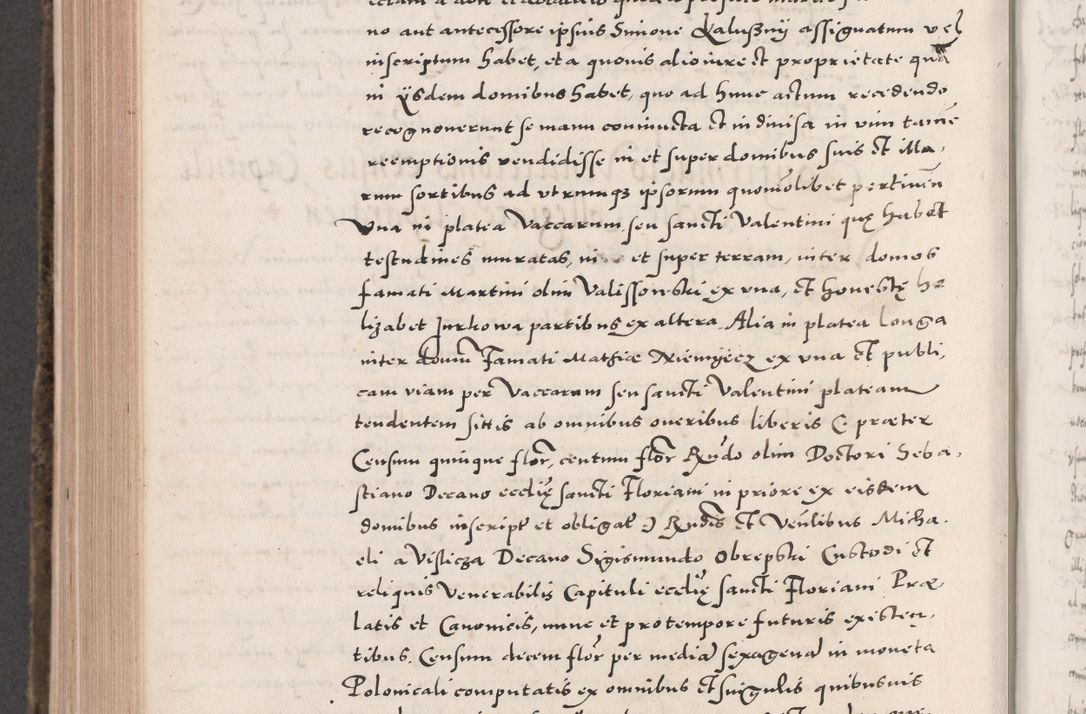 no aut antecessore ipsius Simone Kaluszny assignatum vel
inscriptum habet, et a quovis alio iure et proprietate qua
in iisdem domibus habet, quo ad hunc actum recedendo
recognoverunt se manu coniuncta et indivisa in vim tamē
reemptionis vendidisse in et super domibus suis et illa-
rum sortibus ad utrumqȝ ipsorum quomōlibet pertinēn
Una in platea Vaccarum seu sancti Valentini quę habet
testudines muratas, in et super terram, inter domos
famati Martini olim Valissowski ex una, et honestę He
lizabet Jurkowa partibus ex altera. Alia in platea longa
inter domū famati Mathiæ ex una et publi,
cam viam per Vaccarum seu sancti Valentini plateam
tendentem sittis ab omnibus oneribus liberis (: præter
Censum quinque flor, centum flor Rndo olim Doctori Seba,
stiano Decano ecclię sancti Floriani in priore ex eisdem
domibus inscript et obligat :) Rndis et Venlibus Micha.
eli a Vislicza Decano Sigismundo Obrepski Custodi et
reliquis Venerabilis Capituli ecclię sancti Floriani Præ
latis et Canonicis, nunc et pro tempore futuris existen,
tibus. Censum decem flor per media sexagena in moneta
Polonicali computatis ex omnibus et singulis quibusvis